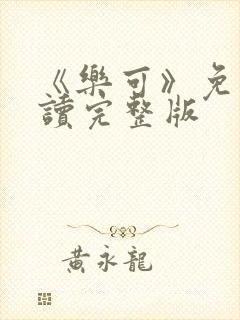 《樂可》免
讀完整版
黃永龍